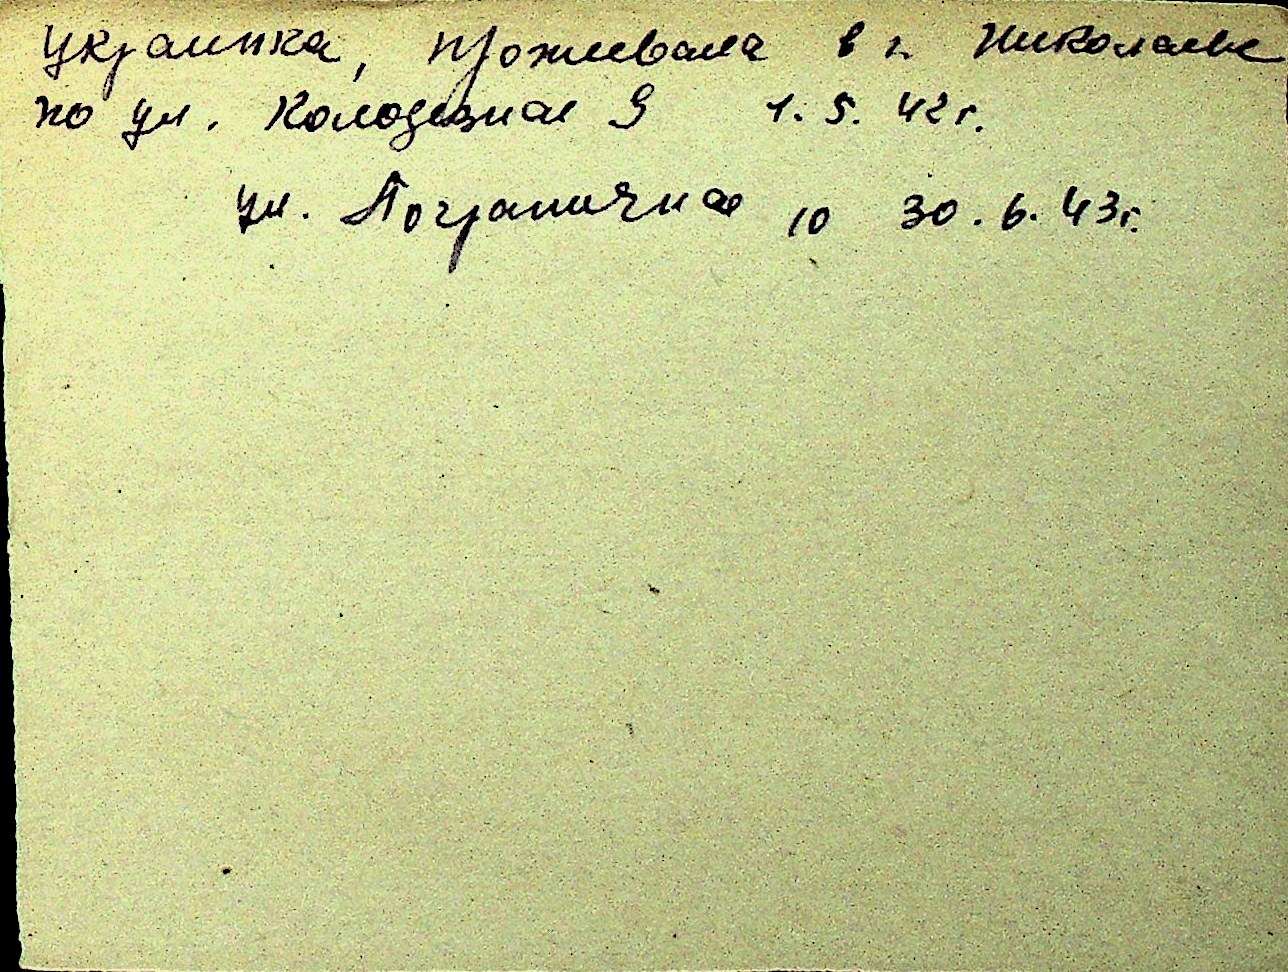 Украинка, проживала в г. Николаеве
по ул. Колодезная 9 1.5.42г.
ул. Пограничная 10 30.6.43г.